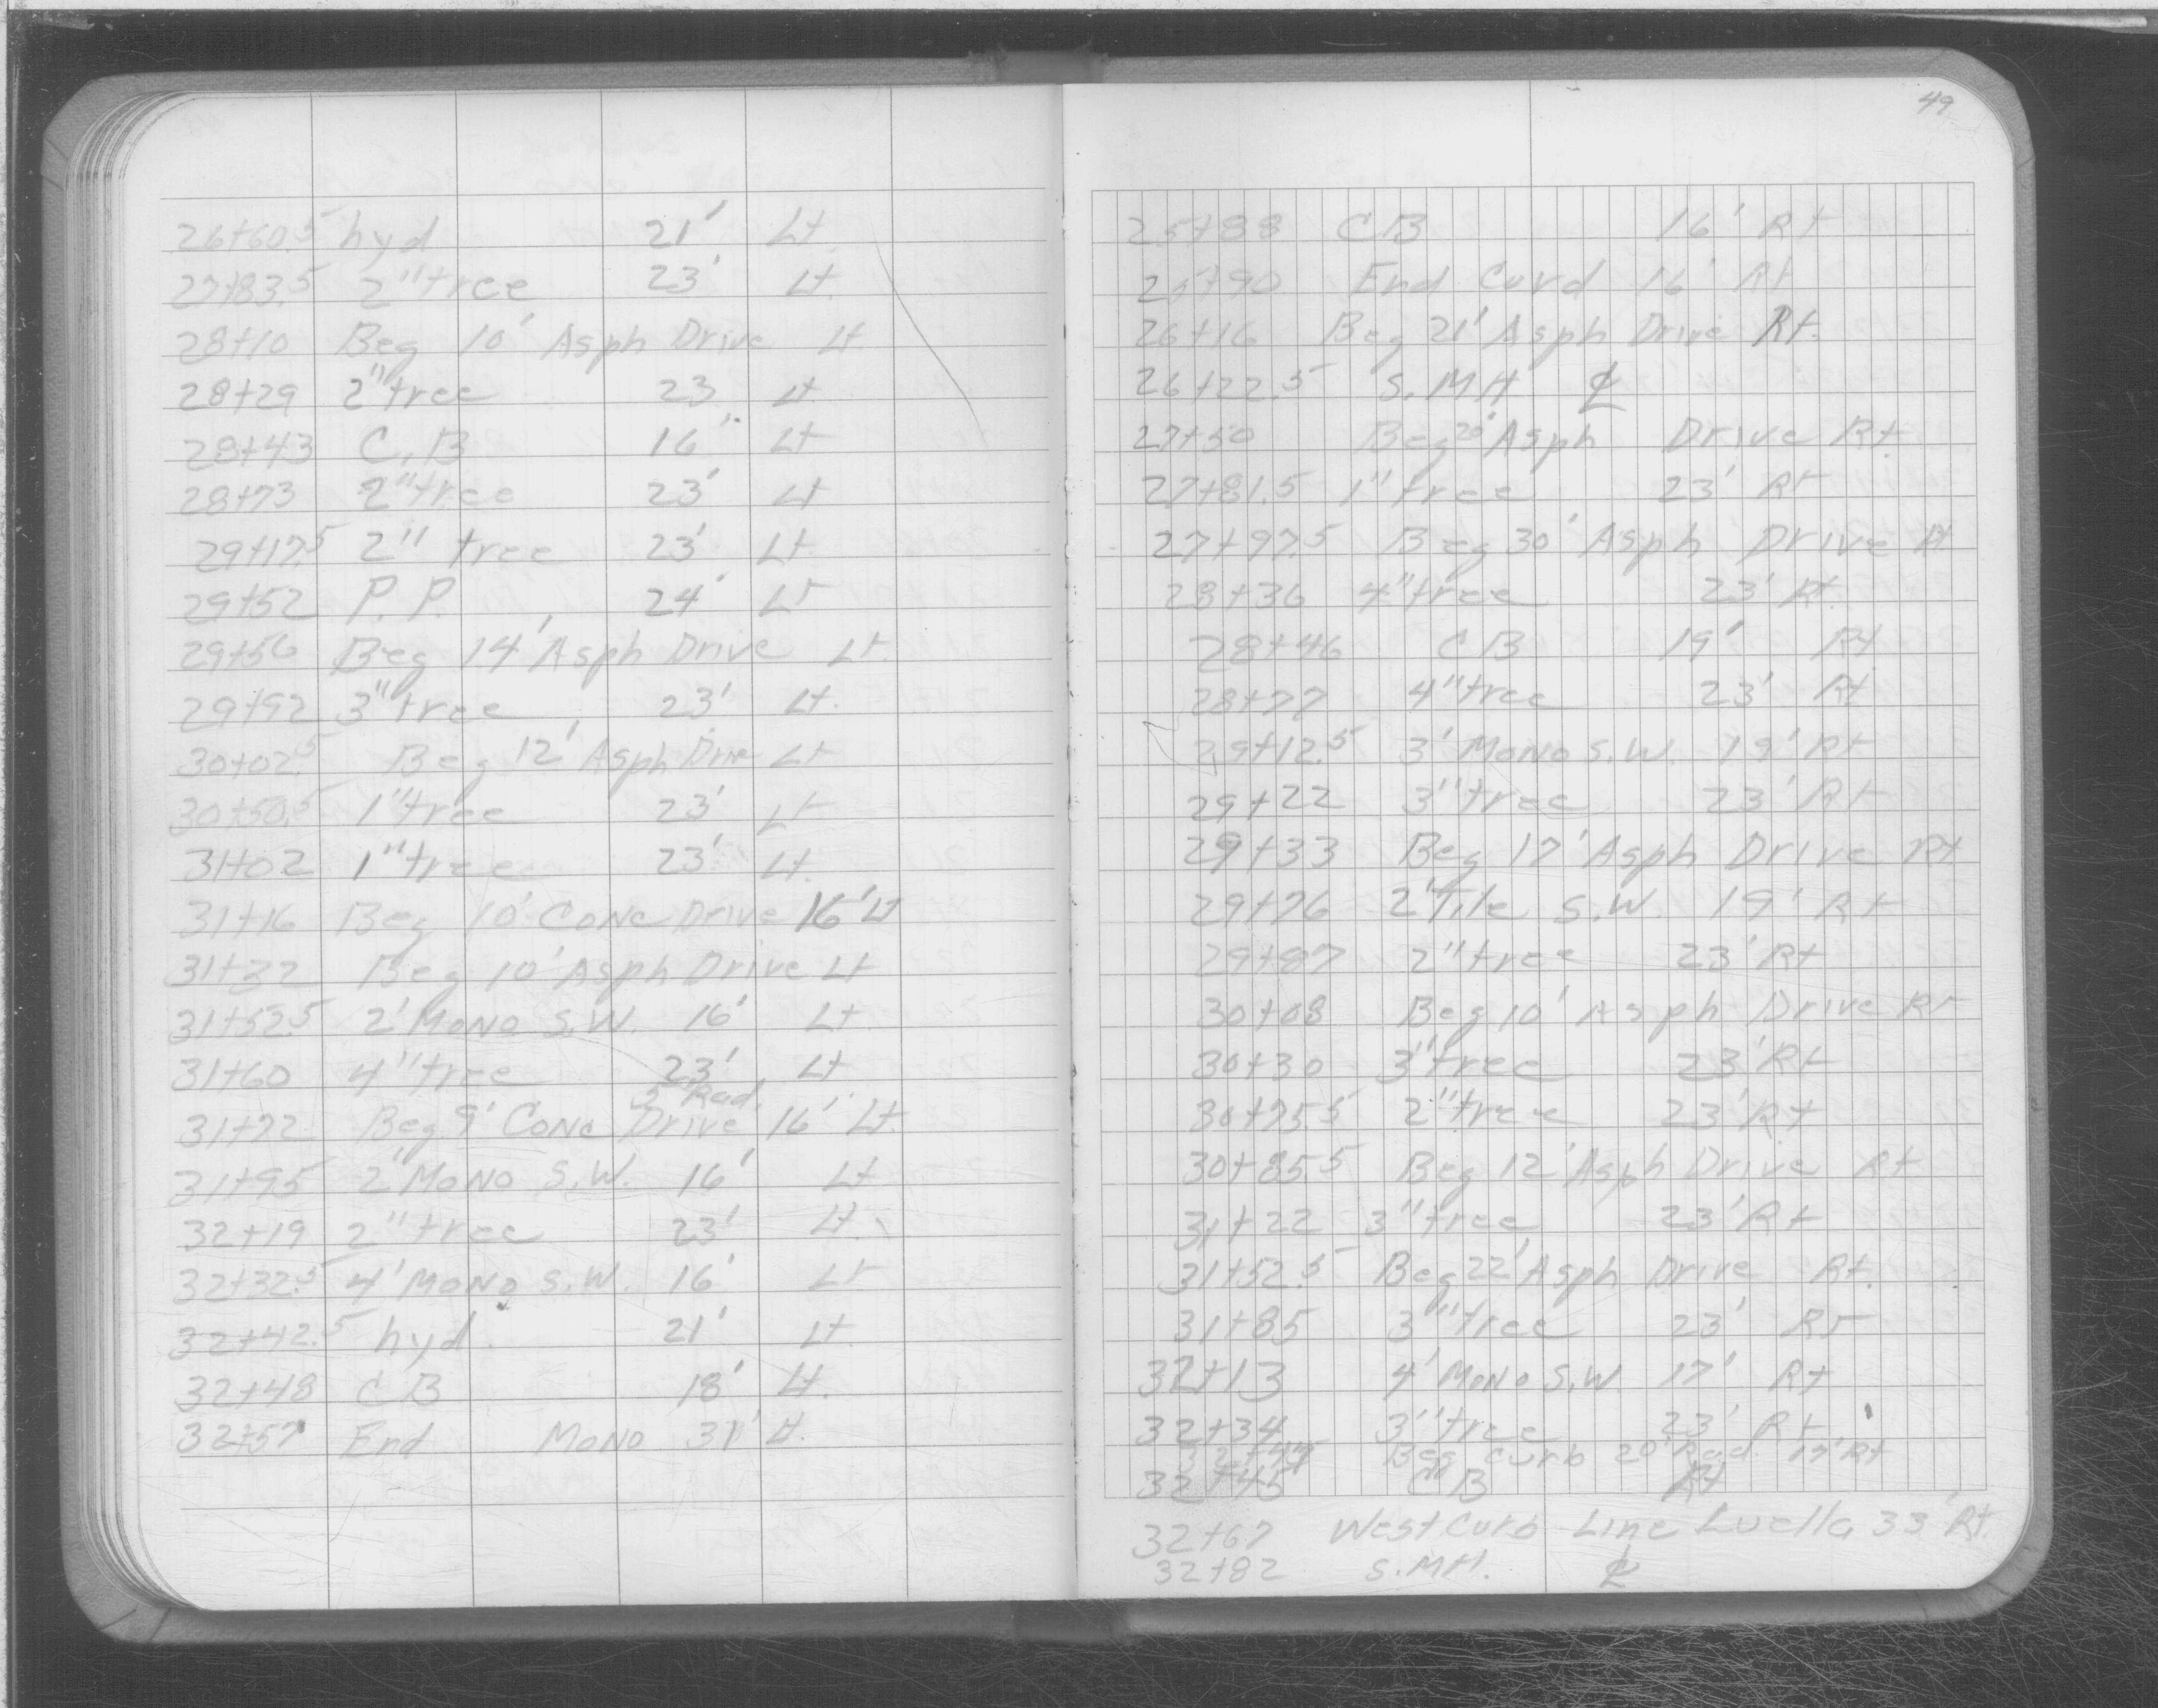 26+60.5 hyd 21' Lt.
27+83.5 2" tree 23' Lt.
28+10 Beg 10' Asph Drive Lt
28+29 2" tree 23 Lt.
28+43 C.B 16' Lt
28+73 2" tree 23' Lt
29+17.5 2" tree 23' Lt
29+52 P.P. 24' Lt
29+56 Beg 14' Asph Drive Lt.
29+92 3" tree 23' Lt.
30+02.5 Beg 12' Asph Drive Lt
30+50.5 1" tree 23' Lt
31+02 1" tree 23' Lt.
31+16 Beg 10' Conc Drive 16' Lt
31+32 Beg 10' Asph Drive Lt
31+52.5 2' Mono S.W. 16' Lt
31+60 4" tree 23' Lt
31+72 Beg 9' Conc Drive 16' Lt.
31+95 2' Mono S.W. 16' Lt
32+19 2" tree 23' Lt.
32+32.5 4' Mono S.W. 16' Lt
32+42.5 hyd. 21' Lt
32+48 CB 18' Lt.
32+57 End Mono 31' Lt.
49
25+88 CB 16' Rt
25+90 End Curd 16' Rt
26+16 Beg 21' Asph Drive Rt.
26+22.5 S.MH ℄
27+50 Beg 20' Asph Drive Rt
27+81.5 1" tree 23' Rt
27+97.5 Beg 30' Asph Drive Rt
28+36 4" tree 23' Rt.
28+46 CB 19' Rt
28+77 4" tree 23' Rt
29+12.5 3' Mono S.W. 19' Rt
29+22 3" tree 23' Rt
29+33 Beg 17' Asph Drive Rt
29+76 2' Tile S.W. 19' Rt
29+87 2" tree 23' Rt
30+08 Beg 10' Asph Drive Rt
30+30 3" tree 23' Rt
30+75.5 2" tree 23' Rt
30+85.5 Beg 12' Asph Drive Rt
31+22 3" tree 23' Rt
31+52.5 Beg 22' Asph Drive Rt.
31+85 3" tree 23' Rt
32+13 4' Mono S.W. 17' Rt
32+34 3" tree 23' Rt
Beg Curb 20' Rad. 17' Rt
32+45 CB Rt
32+67 West Curb Line Luella 33' Rt.
32+82 S.MH. ℄